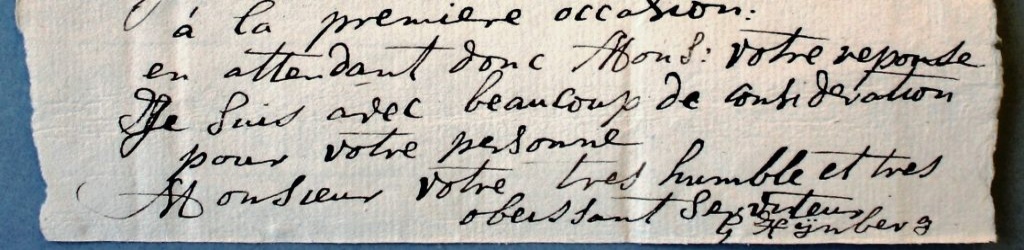 á la premiere occasion:
en attendant donc Mons: votre reponse
Je suis avec beaucoup de consideration
pour votre personne
Monsieur votre tres humble et tres
obeissant serviteur